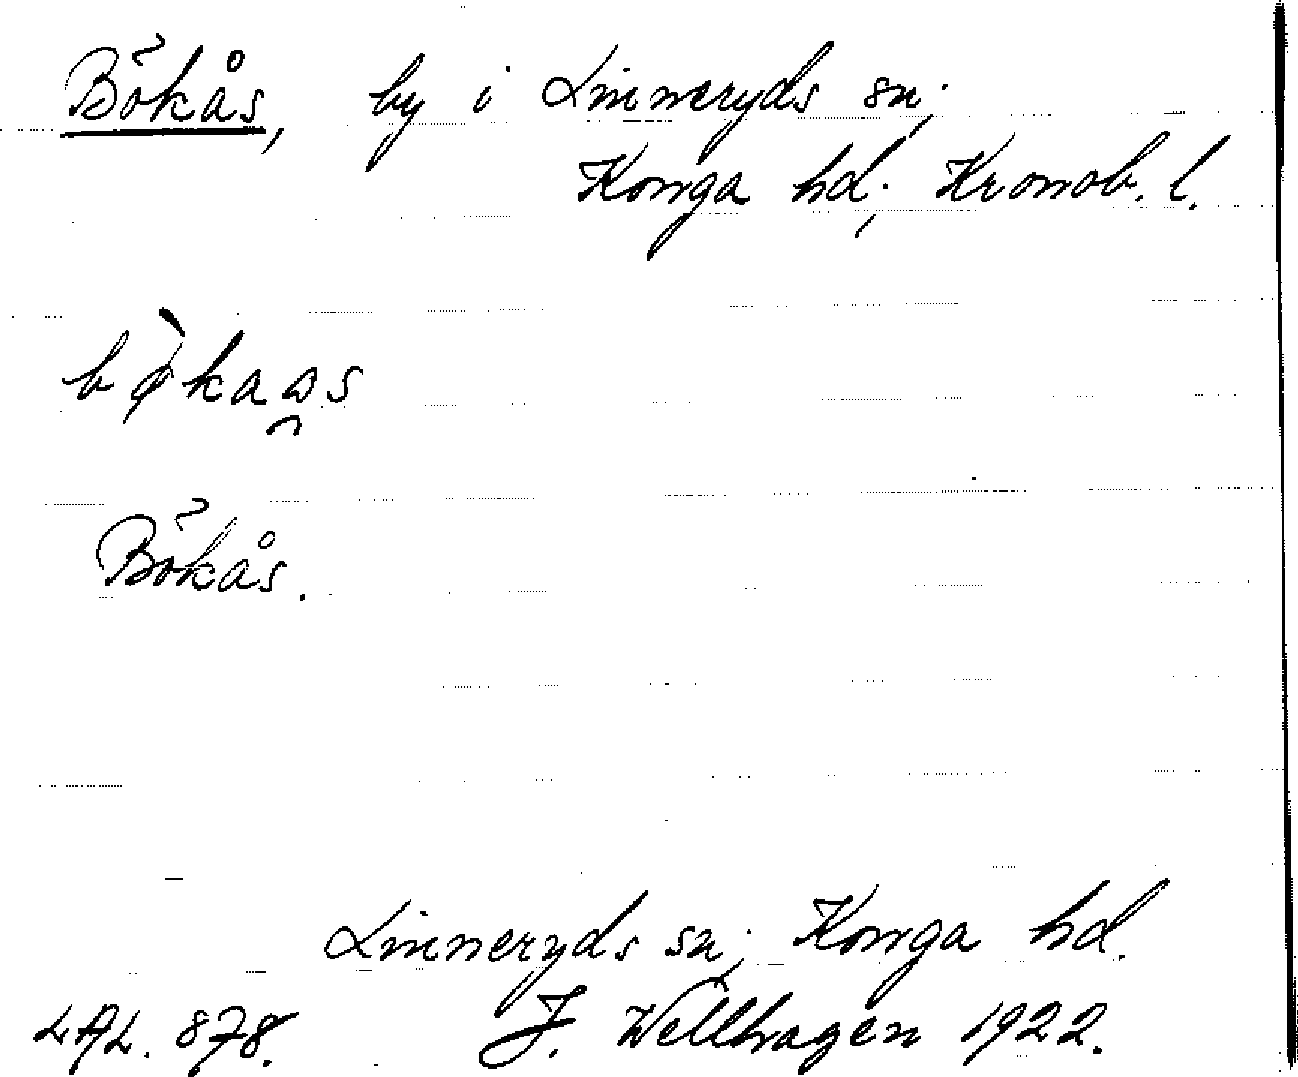 Bökås, by i Linneryds sn;
Konga hd; Kronob. l.
bø̀kaa̯s
Bökås.
Linneryds sn; Konga hd.
LAL. 878. J. Wellhagen 1922.